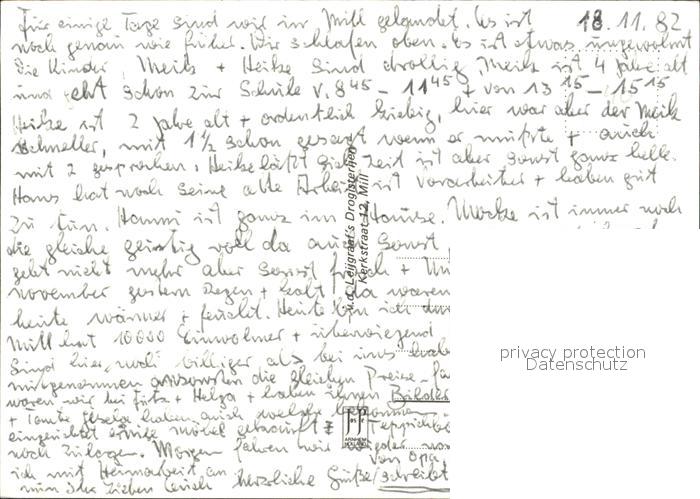 18.11.82
Für einige Tage sind wir in Mill gelandet. Es ist
noch genau wie früher. Wir schlafen oben. Es ist etwas ungewohnt
Die Kinder, Meik + Heike sind drollig, Meik ist 4 Jahre alt
und geht schon zur Schule v. 8 45 - 11 45 + von 13 15 - 15 15
Heike ist 2 Jahre alt + ordentlich hier war aber der Meik
schneller, mit 1 1/2 schon gesagt wenn er mußte + auch
mit 2 gesprochen, Heike läßt sich Zeit ist aber sonst ganz helle.
Hans hat noch seine alte Arbeit ist Vorarbeiter + haben gut
zu tun. Hanni ist ganz im Hause. ist immer noch
die gleiche geistig voll da auch sonst
geht nicht mehr aber sonst frisch +
november gestern Regen + kalt da waren
heute wärmer + feucht. Heute bin ich
Mill hat 10000 Einwohner + überwiegend
sind hier noch billiger als bei uns
mitgenommen ansonsten die gleichen Preise
waren wir bei Fritz + Helga + haben ihnen Bilder
+ Tante Gisela haben auch welche bekommen
eingerichtet einige möbel gekauft + Teppich
noch zulegen. Morgen fahren wir wieder
von Opa
ich mit Heimarbeit an herzliche Grüße schreibt
nun Ihr Lieben euch
v.d. Leijgraaf's Drogisterijen
Kerkstraat 12, Mill
ARNHEM
HOLLAND
privacy protection
Datenschutz